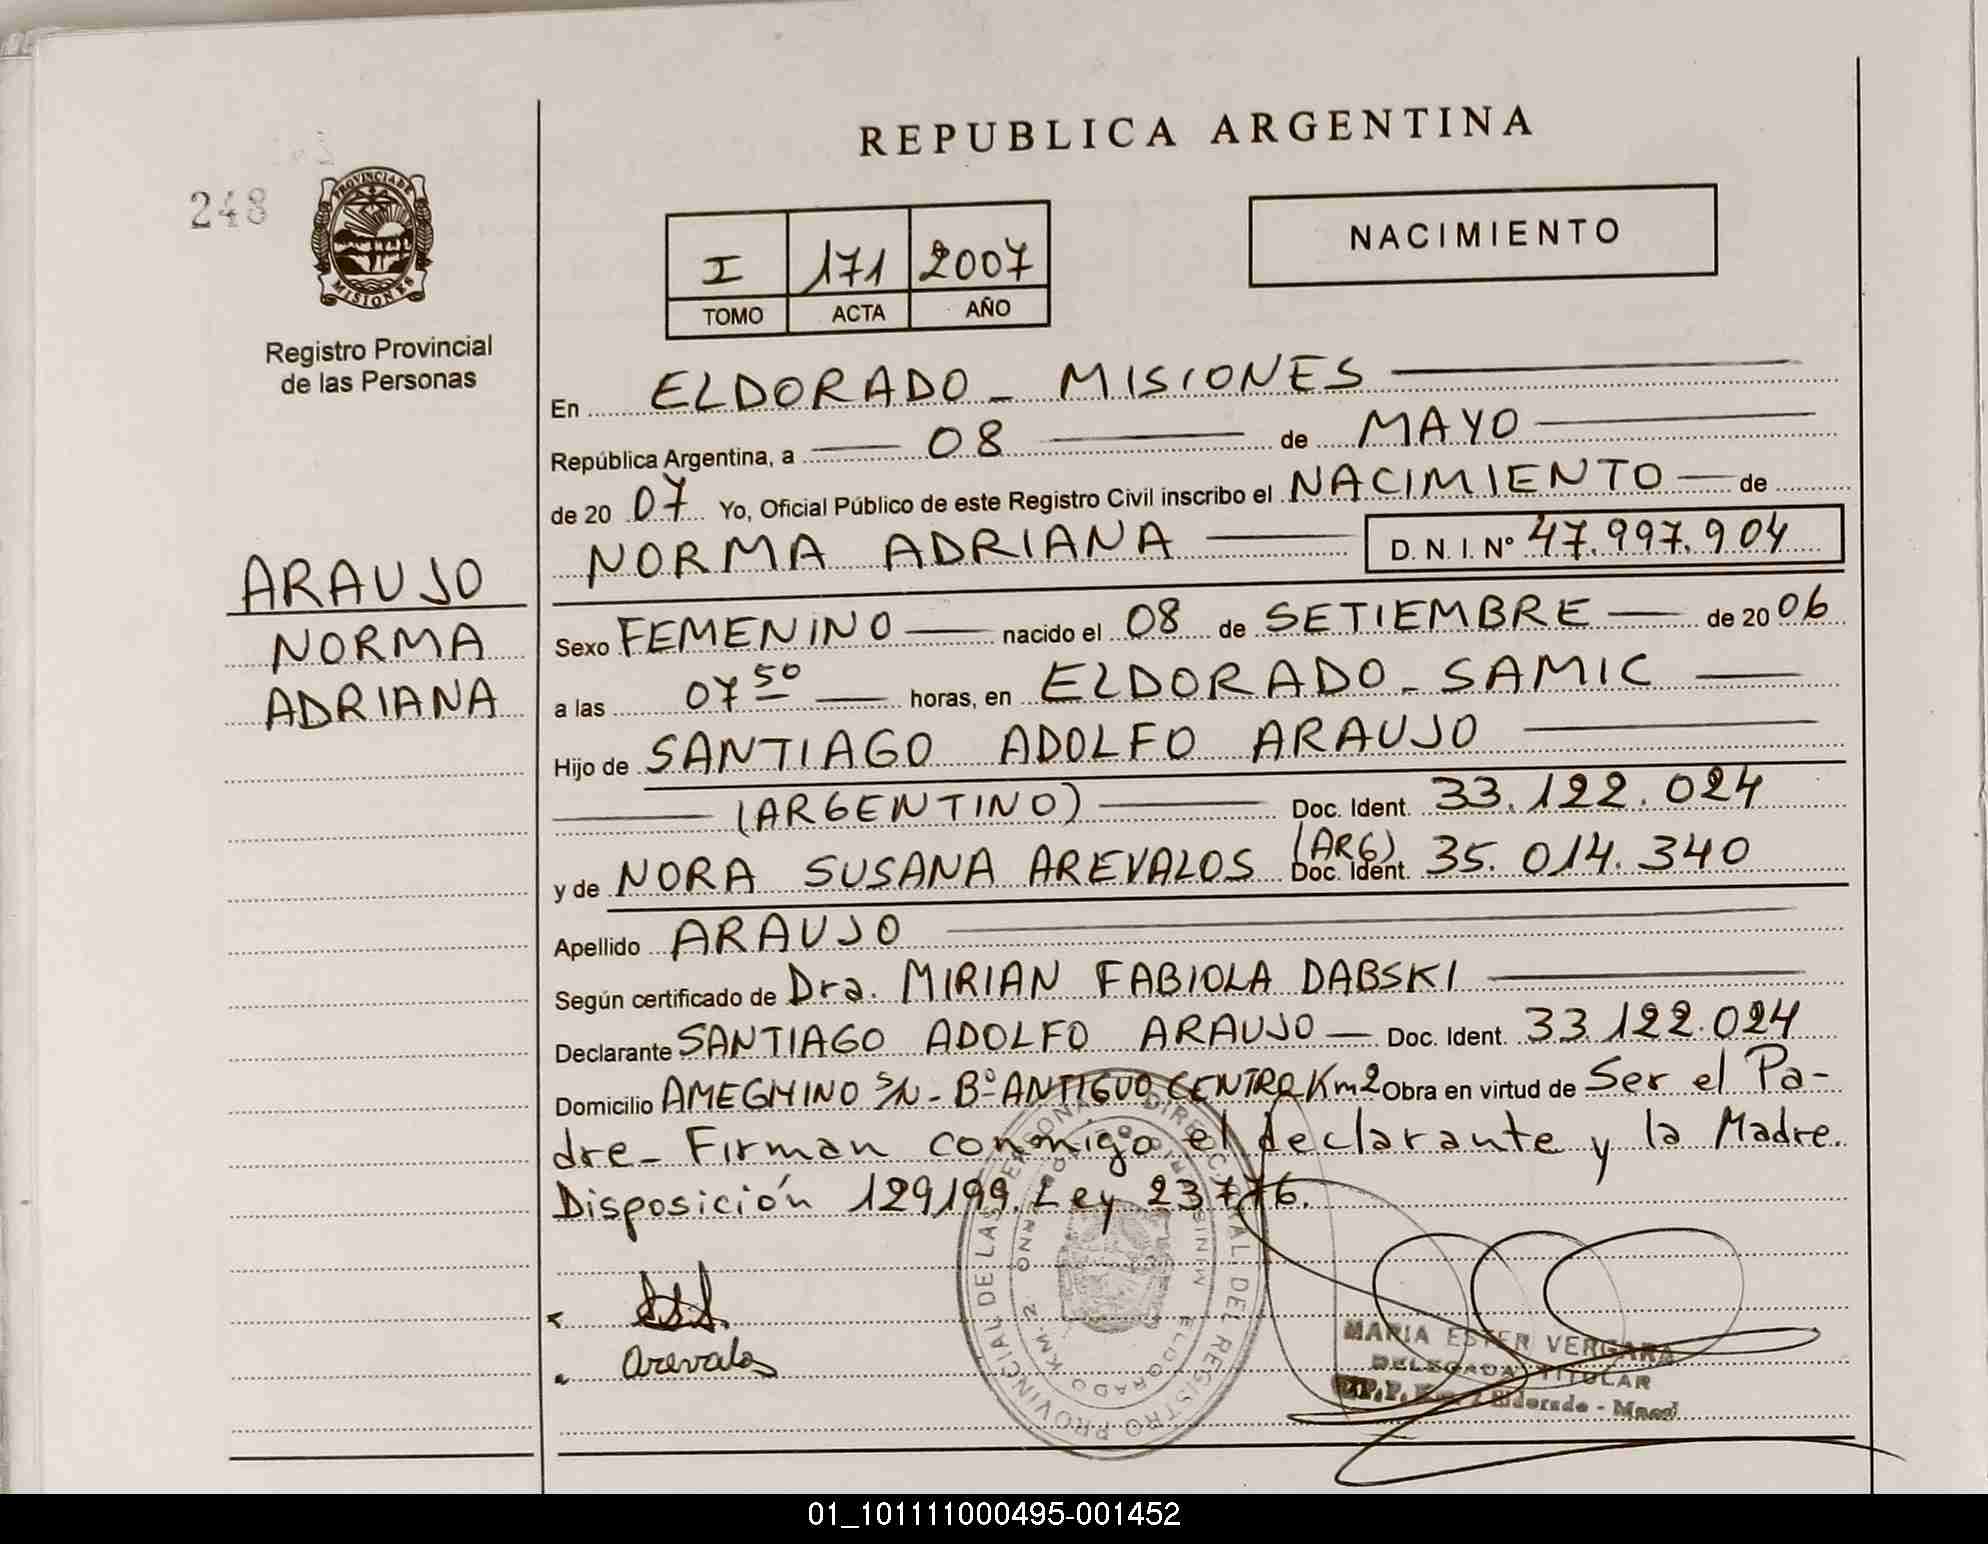 REPUBLICA ARGENTINA
248
PROVINCIA DE
MISIONES
Registro Provincial
de las Personas
I 171 2007
TOMO ACTA AÑO
NACIMIENTO
En ELDORADO - MISIONES
República Argentina, a 08 de MAYO
de 20 07 Yo, Oficial Público de este Registro Civil inscribo el NACIMIENTO de
NORMA ADRIANA D. N. I. Nº 47.997.904
ARAUJO
NORMA
ADRIANA
Sexo FEMENINO nacido el 08 de SETIEMBRE de 20 06
a las 07 50 horas, en ELDORADO - SAMIC
Hijo de SANTIAGO ADOLFO ARAUJO
(ARGENTINO) Doc. Ident. 33.122.024
y de NORA SUSANA AREVALOS (ARG) Doc. Ident. 35.014.340
Apellido ARAUJO
Según certificado de Dra. MIRIAN FABIOLA DABSKI
Declarante SANTIAGO ADOLFO ARAUJO Doc. Ident. 33.122.024
Domicilio AMEGHINO S/N - Bº ANTIGUO CENTRO Km2 Obra en virtud de Ser el Pa-
dre - Firman conmigo el declarante y la Madre.
Disposición 129/99. Ley 23776.
Arevalos
DIREC. REGISTRO PROVINCIAL DE LAS PERSONA
KM. 2 ELDORADO
MARIA ESTER VERGARA
DELEGADA TITULAR
Eldorado - Mnes
01_101111000495-001452